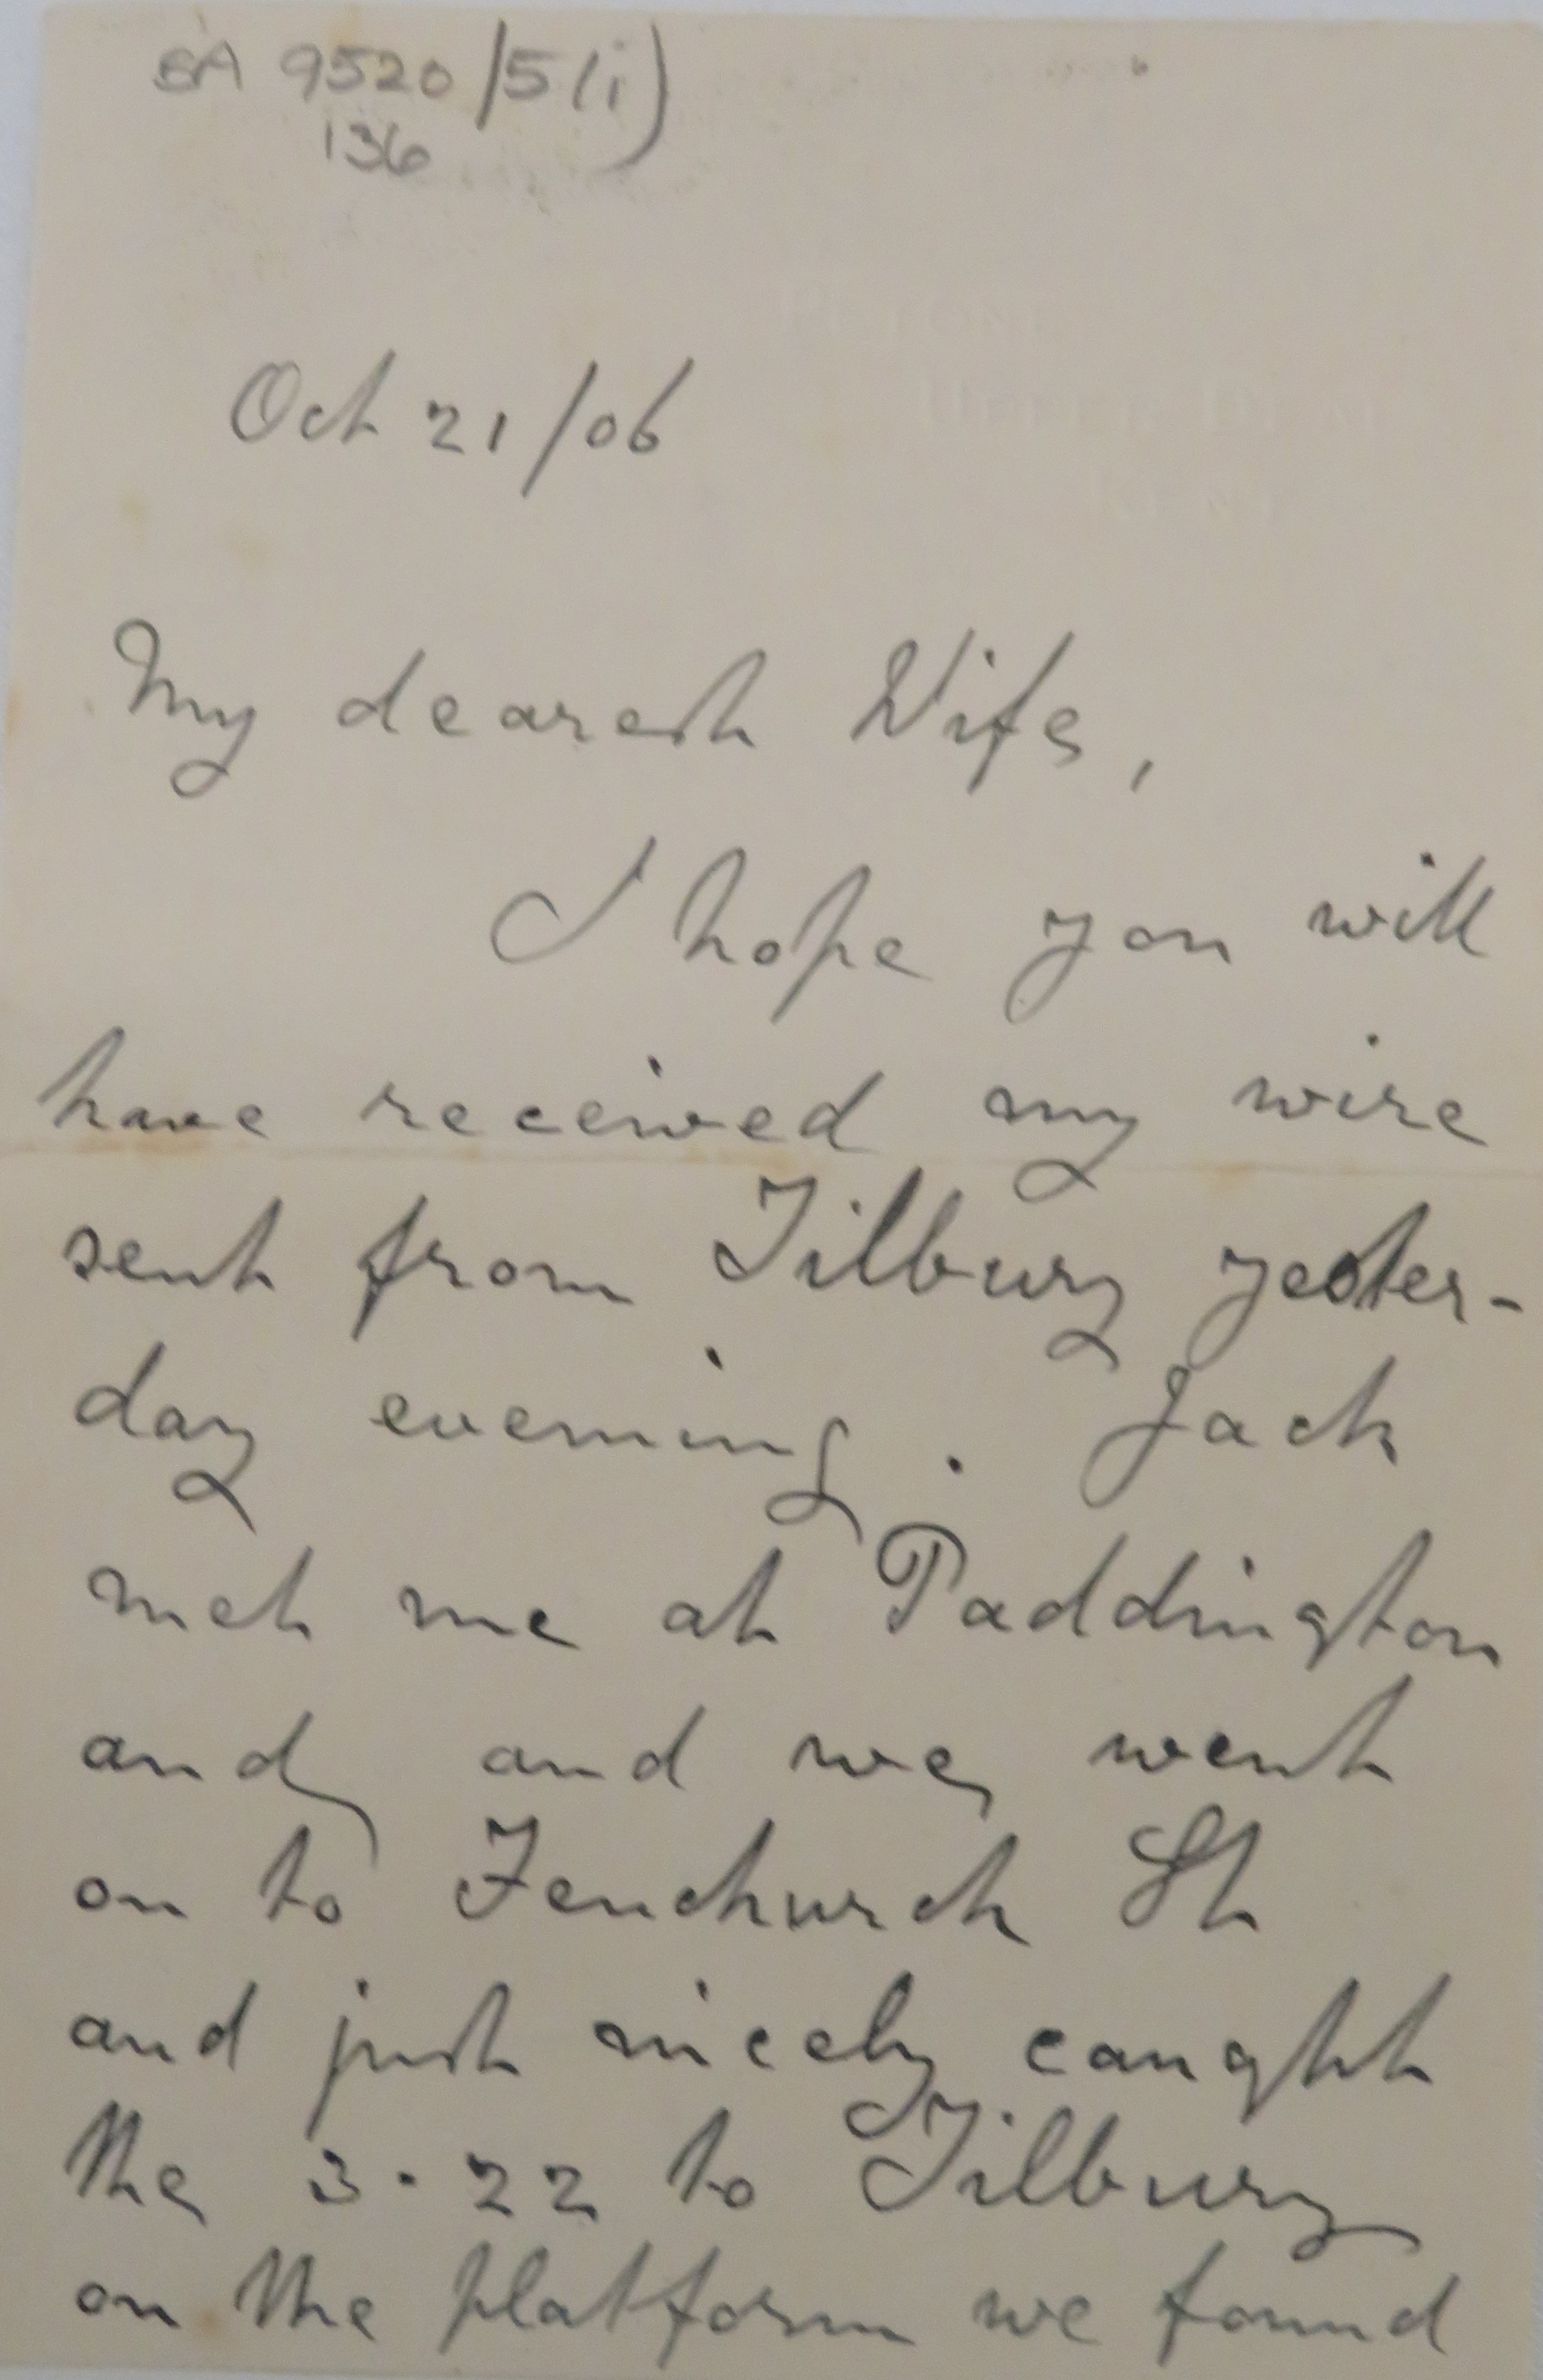 BA 9520/5(i)
136
Oct 21/06
UPPER DEAL
KENT
My dearest Wife,
I hope you will
have received my wire
sent from Tilbury yester-
day evening. Jack
met me at Paddington
and and we went
on to Fenchurch St
and just nicely caught
the 3.22 to Tilbury
on the platform we found